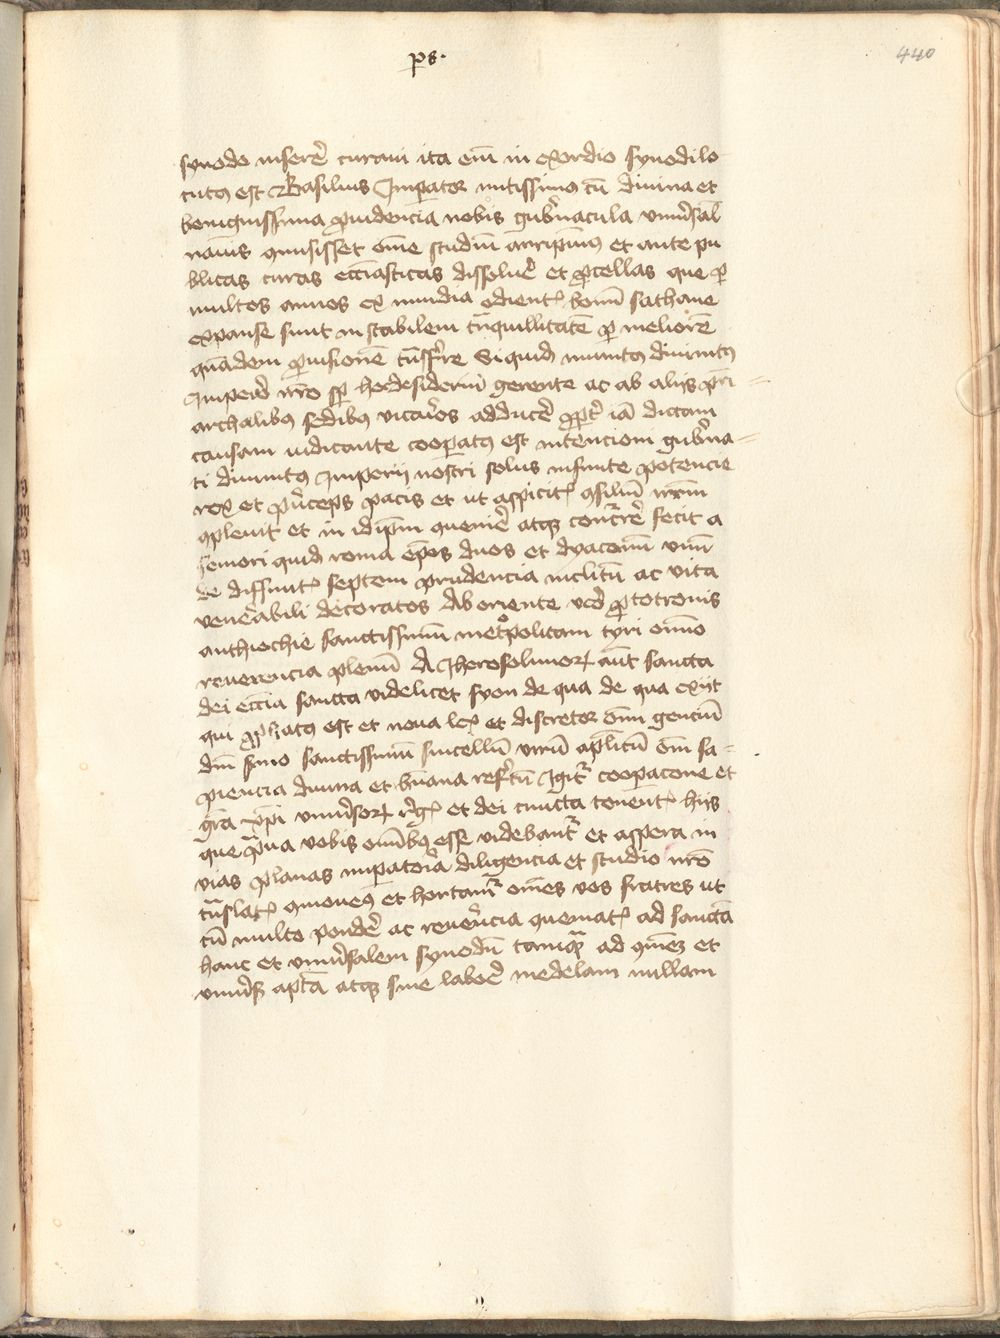 ps.
440
synodo inserere curavi ita enim in exordio synodi lo-
cutus est Basilius Imperator mitissimus cum divina et
benignissima providencia nobis gubernacula universalis
navis commisisset omne studium arripimus et ante pu
blicas curas ecclesiasticas dissolvere et procellas que per
multos annos ex invidia odientis bonum sathane
expanse sunt in stabilem tranquillitatem per meliorem
quandem provisionem transferre Siquidem munitus divinitus
Imperio nostro super hoc desiderium gerente ac ab alijs patri=
archalibus sedibus vicarios adducere propter iam dictam
causam iudicante cooperatus est intencioni guberna=
ti divinitus Imperij nostri solus infinite potencie
rex et princeps pacis et ut aspicitis consilium nostrum
complevit et in idipsum convenire atque concurrere fecit a
seniori quidem roma episcopos duos et dyaconum unum
de diffinitis septem prudencia inclitum ac vita
venerabili decoratos Ab oriente vero protothronis
anthiochie sanctissimum metropolitam tyri omnino
reverencia plenum A Iherosolimorum autem sancta
dei ecclesia sancta videlicet syon de qua de qua exijt
qui prophetatus est et nova lex et discretor omnium gencium
dominum suo sanctissimum sincellum virum apostolicum omni sa=
piencia divina et humana refertum Igitur cooperacione et
gracia christi universorum regis et dei cuncta tenentis hijs
que prava vobis omnibus esse videbantur et aspera in
vias planas imperatoria diligencia et studio nostro
translatis commonemus et hortamur omnes vos fratres ut
cum multo pondere ac reverencia conveniatis ad sanctam
hanc et universalem synodum tamquam ad communem et
universis aptam atque sine labore medelam nullam